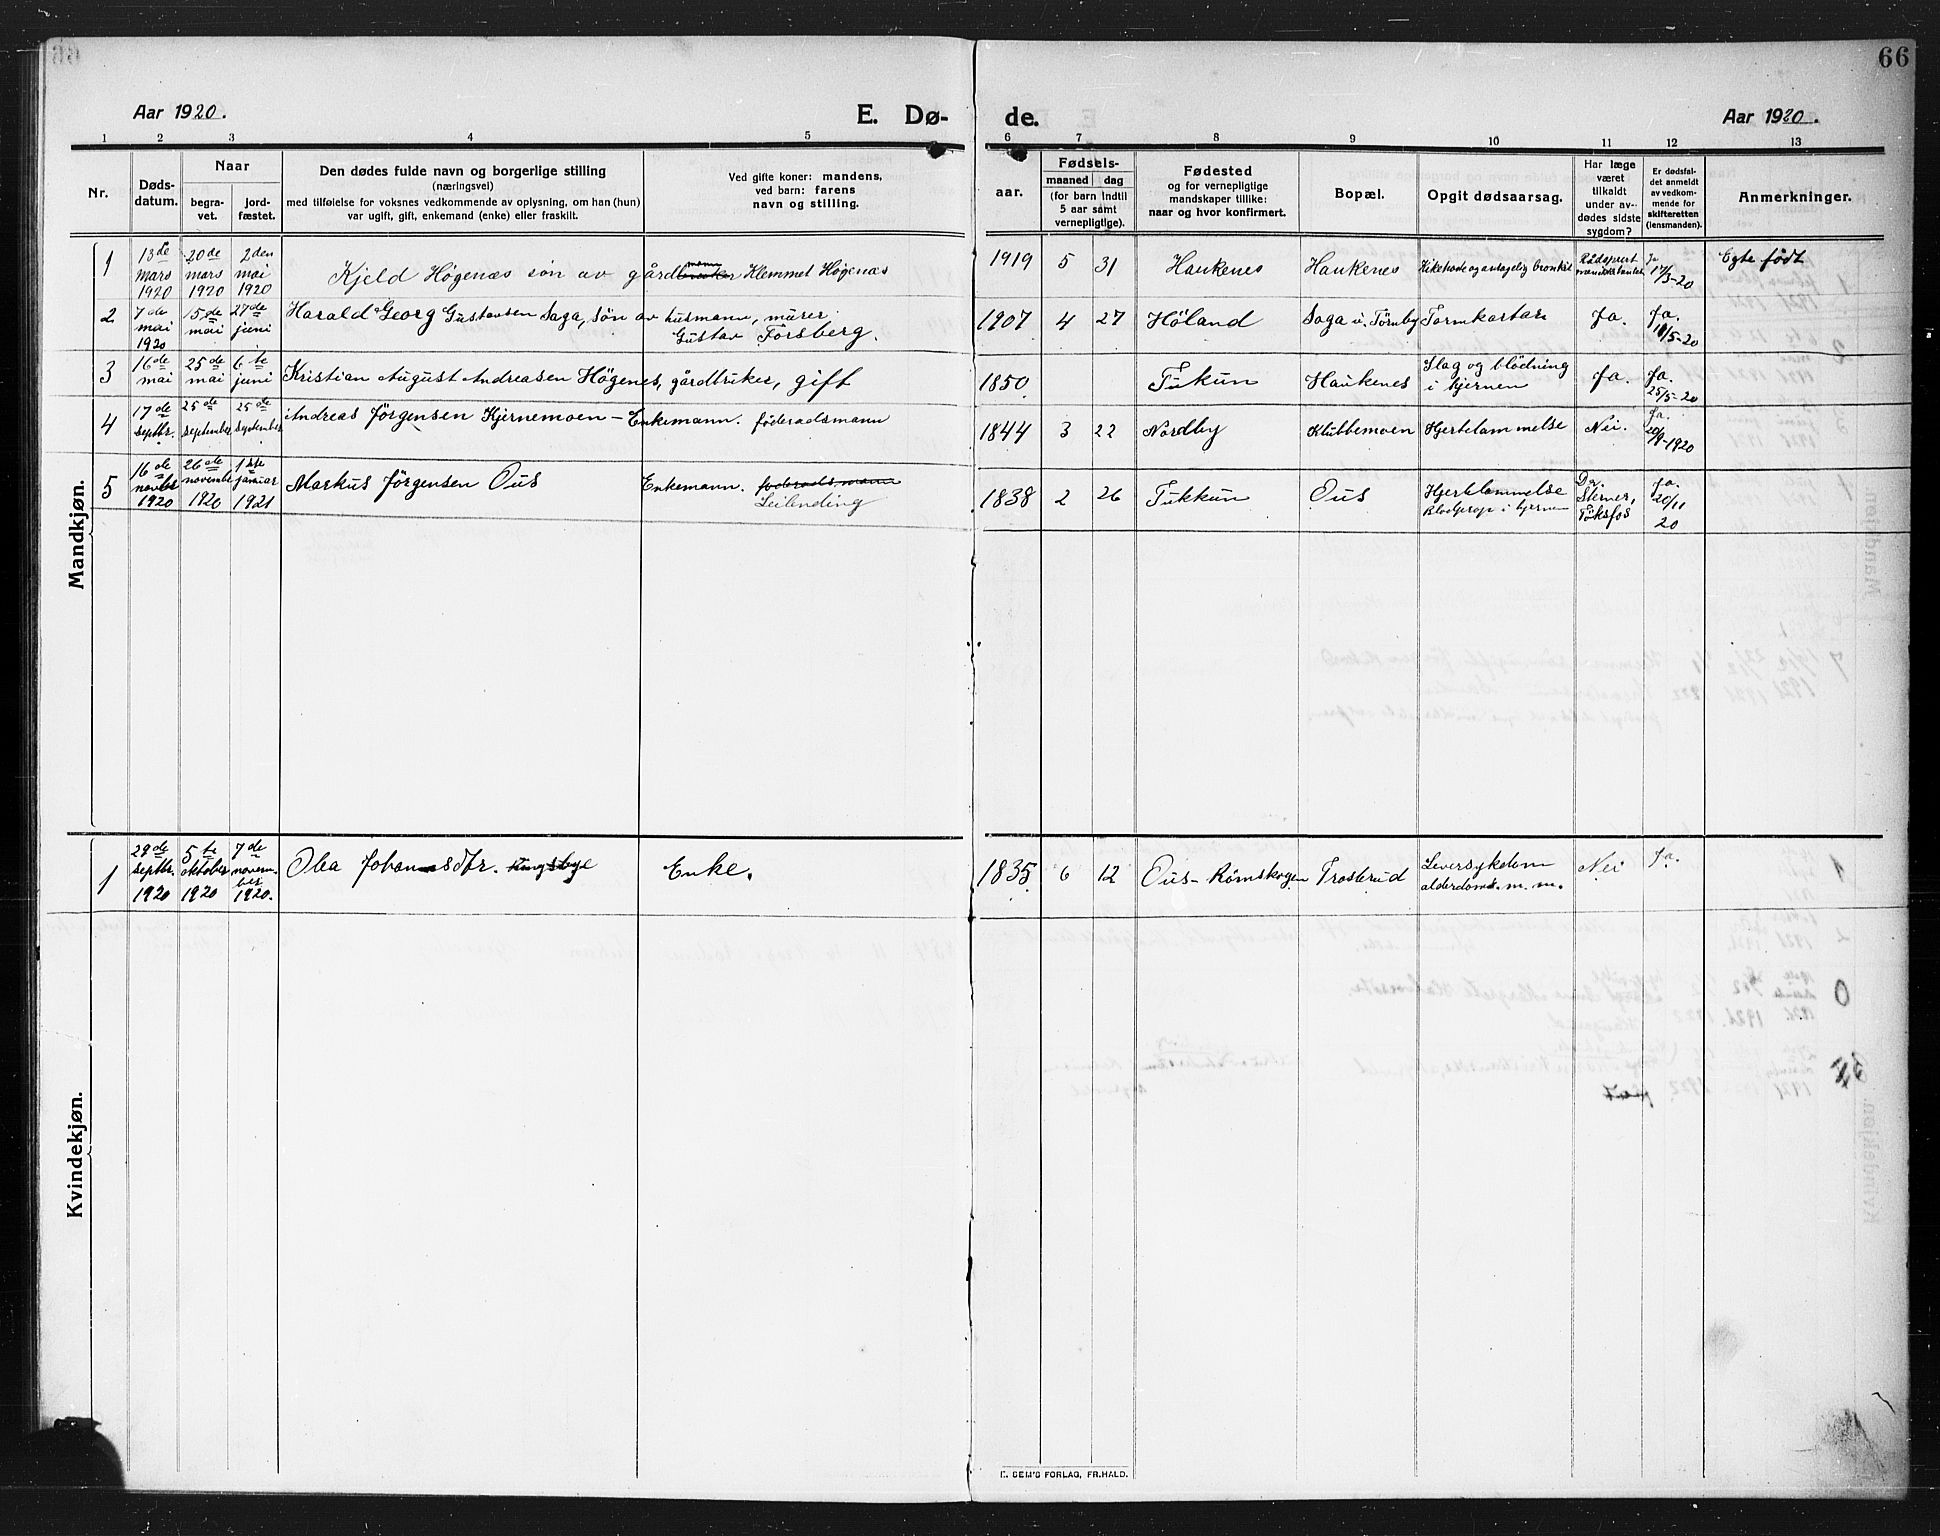 66
Aar 1920.
E. Dø-
de.
Aar 1920.
1 2 3 4 5 6 7 8 9 10 11 12 13
Nr.
Døds-
datum.
Naar
begra-
vet.
jord-
fæstet.
Den dødes fulde navn og borgerlige stilling
(næringsvei)
med tilføielse for voksnes vedkommende av oplysning, om han (hun)
var ugift, gift, enkemand (enke) eller fraskilt.
Ved gifte koner: mandens,
ved barn: farens
navn og stilling.
Fødsels-
aar.
maaned dag
(for barn indtil
5 aar samt
vernepligtige).
Fødested
og for vernepligtige
mandskaper tillike:
naar og hvor konfirmert.
Bopæl.
Opgit dødsaarsag.
Har læge
været
tilkaldt
under av-
dødes sidste
sygdom?
Er dødsfal-
det anmeldt
av vedkom-
mende for
skifteretten
(lensmanden).
Anmerkninger.
Mandkjøn.
1
13de
mars
1920
20de
mars
1920
2den
mai
1920
Kjeld Högenæs søn av gårdbruker Klemmet Högenæs
mann
1919 5 31
Haukenes
Haukenes
Kikehoste og bronkit
Ja
17/3-20
Egte født
2
7de
mai
1920
15de
mai
27de
juni
Harald Georg Gustavsen Saga, søn av husmann, mürer
Gustav Forsberg.
1907 4 27
Høland
Saga u. Törnby
Tarmkatar
Ja.
Ja.
10/5-20
3
16de
mai
25de
mai
6te
juni
Kristian August Andreasen Högenes, gårdbruker, gift
1850
Tukun
Haukenes
Slag og blödning
i hjernen
Ja.
Ja.
25/5-20
4
17de
septbr.
25de
september
25de
september
Andreas Jörgensen Kjernemoen - Enkemann. föderaadsmann
1844 3 22
Nordby
Klubbemoen
Hjertelammelse
Nei.
Ja.
20/9-1920
5
16de
novbr
1920
26de
november
1920
1ste
januar
1921
Markus Jörgensen Ous
Enkemann. foderaadsmann
Leilending
1838 2 26
Tukkun
Ous
Hjertelammelse
Blodprop i hjernen
Dr.
Sterner,
Töksfos
Ja.
20/11
20
Kvindekjøn.
1
29de
septbr.
1920
5te
oktober
1920
7de
novem-
ber
1920.
Olea Johannesdtr. Kingsbye
Enke.
1835 6 12
Ous - Römskogen
Trosterud
Leversykdom
alderdoms. m. m.
Nei
Ja.
E. SEM'S FORLAG, FR.HALD.